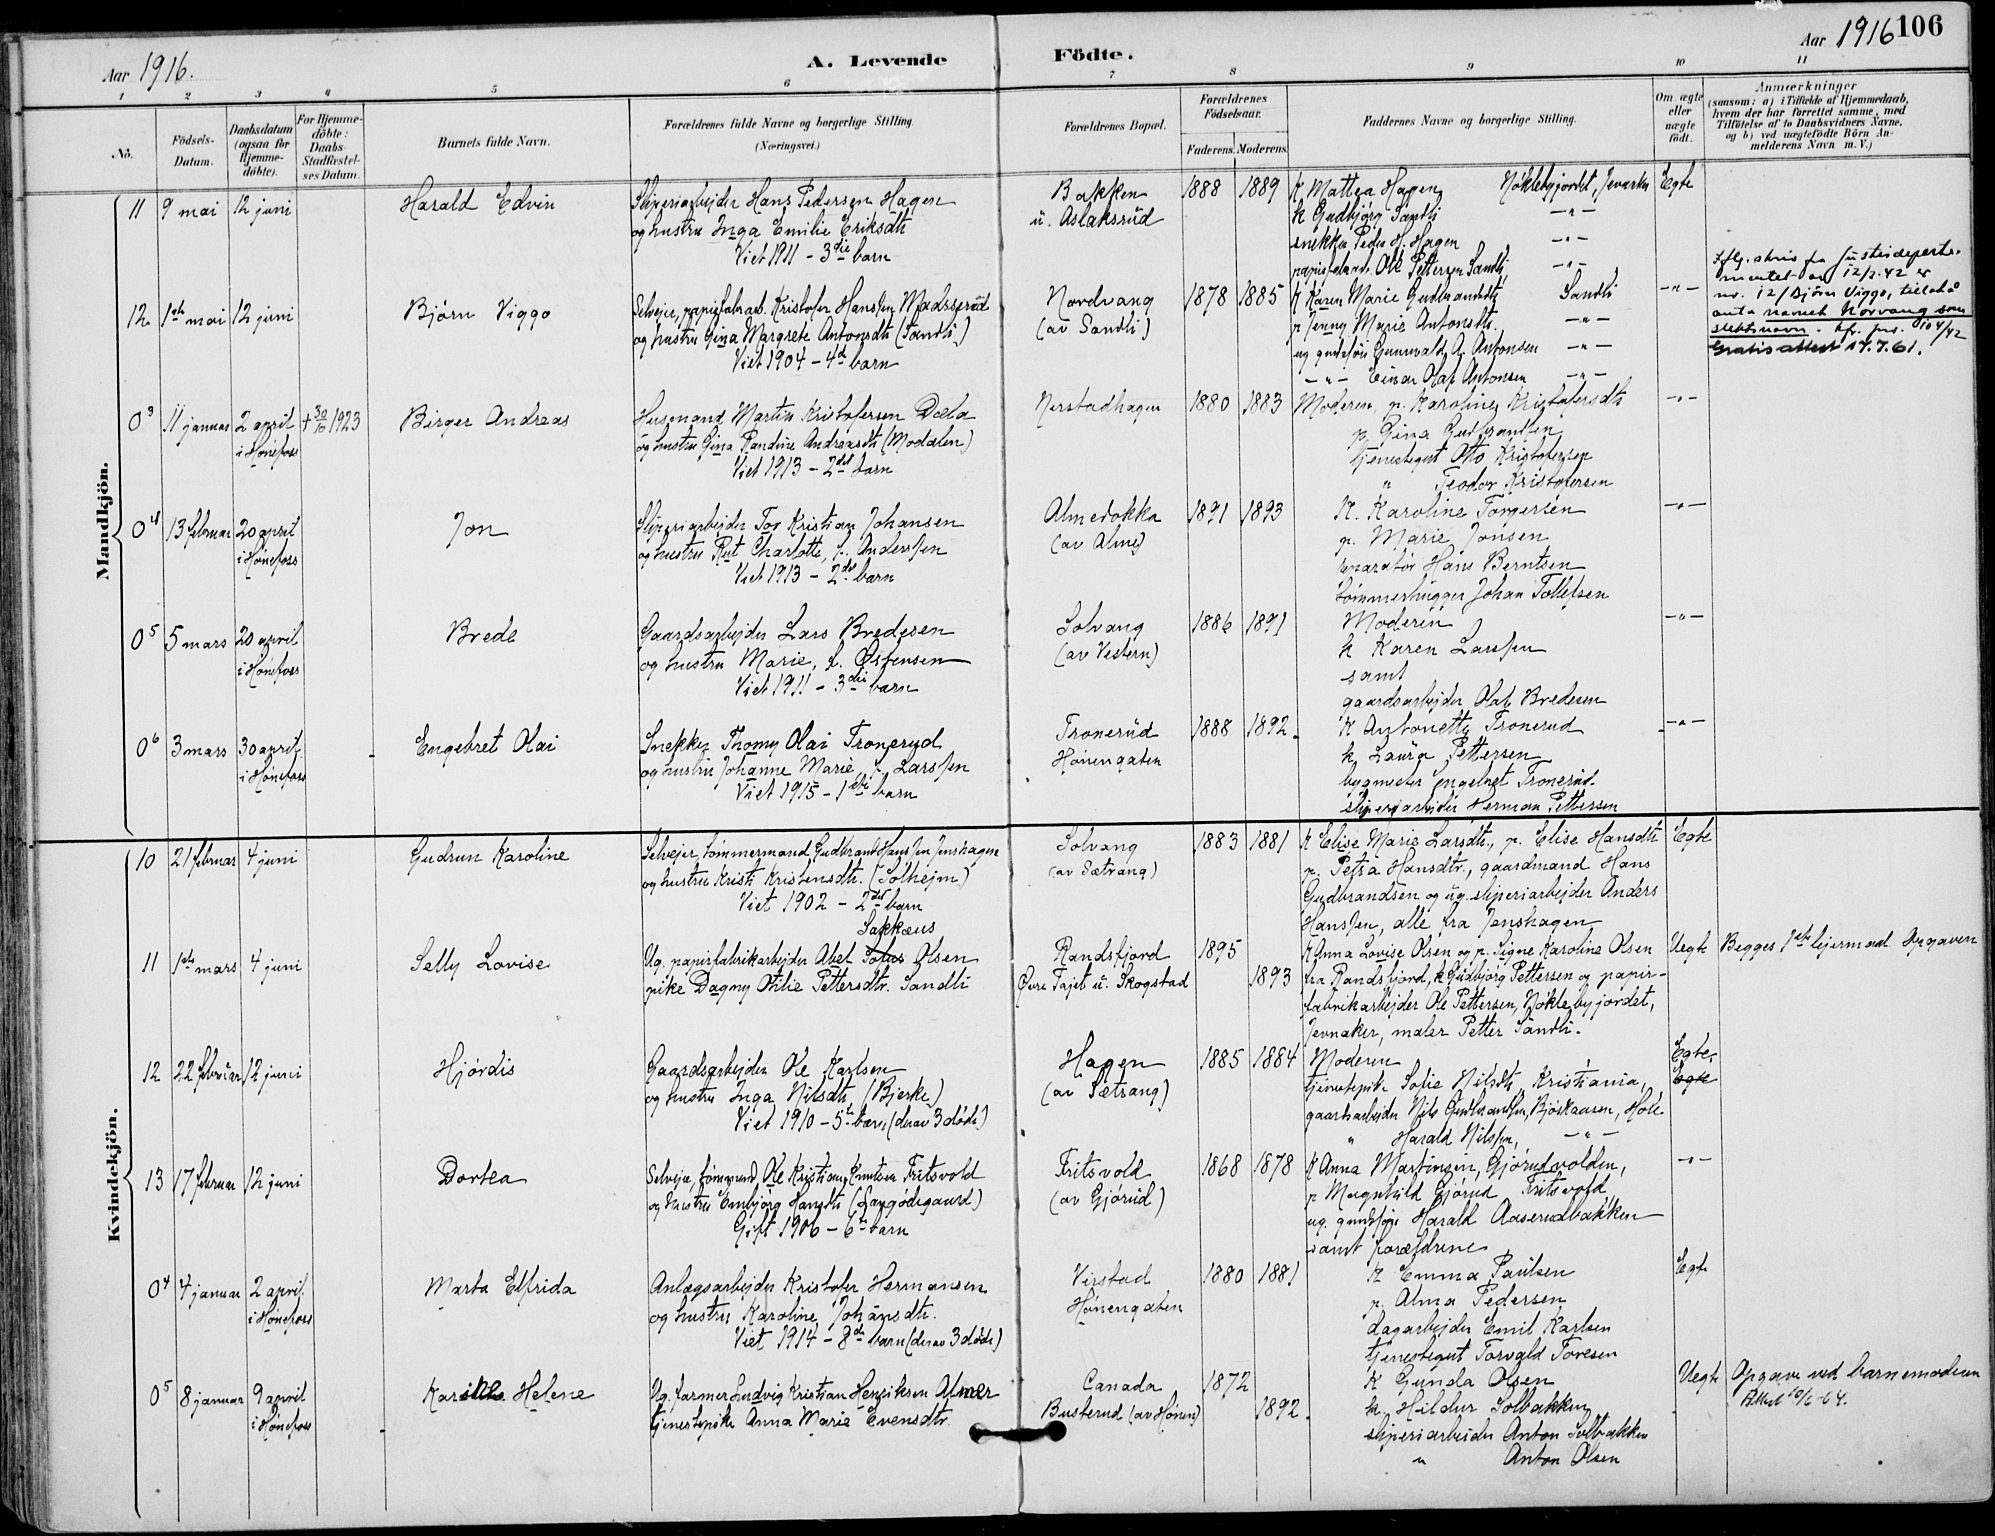 Aar 1916.
A. Levende
Födte.
Aar 1916
106
1 2 3 4 5 6 7 8 9 10 11
No.
Födsels-
Datum.
Daabsdatum
(ogsaa for
Hjemme-
döbte).
For Hjemme-
döbte:
Daabs-
Stadfæstel-
ses Datum.
Barnets fulde Navn.
Forældrenes fulde Navne og borgerlige Stilling
(Næringsvei.)
Forældrenes Bopæl.
Forældrenes
Födselsaar.
Faderens. Moderens.
Faddernes Navne og borgerlige Stilling.
Om ægte
eller
uægte
födt.
Anmærkninger
(saasom: a) i Tilfælde af Hjemmedaab,
hvem der har forrettet samme, med
Tilföielse af to Daabsvidners Navne,
og b) ved uægtefödte Börn An-
melderens Navn m. V.)
Mandkjön.
11 9 mai 12 juni
Harald Edvin
Sliperiarbejder Hans Pedersen Hagen
og hustru Inga Emilie Eriksdtr
Viet 1911 - 3die barn
Bakken
u. Aslaksrud
1888 1889
K Mattea Hagen Nøklebyjordet, Jevnaker
k Gudbjørg Sandli -"-
snekker Peder H. Hagen -"-
papirfabarb. Ole Pettersen Sandli -"-
Egte
12 1ste mai 12 juni
Bjørn Viggo
Selveier, papirfabarb. Kristofer Hanssen Madsserud
og hustru Gina Margrete Antonsdtr (Sandli)
Viet 1904 - 4de barn
Nordvang
(av Sandli)
1878 1885
K Karen Marie Gudbrandsdtr Sandli
p Jenny Marie Antonsdtr. -"-
ug gundsføi Gunnvald A. Antonsen -"-
-"- Einar Olaf Antonsen -"-
-"-
Iflg. skriv fra Justisdeparte-
mentet av 12/2.42 er
nr. 12/Bjørn Viggo, tillatt å
anta navnet Norvang som
slektsnavn. kfr. jnr. 104/42
Gratis attest 17.7.61.
03 11 januar 2 april
i Hønefoss
+ 30/10 1923
Birger Andreas
Husmand Martin Kristofersen Dæla
og hustru Gina Randine Andreasdtr (Modalen)
Viet 1913 - 2det barn
Nerstadhagen
1880 1883
Moderen, p. Karoline Kristofersdtr
p. Gina Gudbrandsen
tjenestegut Otto Kristofersen
" Teodor Kristofersen
-"-
04 13 februar 20 april
i Hønefoss
Jon
Sliperiarbejder Tor Kristian Johansen
og hustru Rut Charlotte, f. Anderssen
Viet 1913 - 2det barn
Almedokka
(av Alme)
1891 1893
K. Karoline Torgersen
p. Marie Jonsen
reparatør Hans Berntsen
tømmerhugger Johan Tollefsen
-"-
05 5 mars 20 april
i Hønefoss
Brede
Gaardsarbejder Lars Bredesen
og hustru Marie, f. Østensen
Viet 1911 - 3die barn
Solvang
(av Vestern)
1886 1891
Moderen
k Karen Larssen
samt
gaardsarbejder Olaf Bredesen
-"-
06 3 mars 30 april
i Hønefoss
Engebret Olai
Snekker Thomy Olai Tronerud
og hustru Johanne Marie f. Larssen
Viet 1915 - 1ste barn
Tronerud
Hønengaten
1888 1892.
K Antonette Tronerud
k Laura Pettersen
bygmester Engebret Tronerud
sliperiarbeider Herman Pettersen
-"-
Kvindekjön.
10 21 februar 4 juni
Gudrun Karoline
Selvejer, tømmermand Gudbrand Hanssen Jenshagen
og hustru Kristi Kristensdtr. (Solhejm)
Viet 1902 - 2det barn
Solvang
(av Sætrang)
1883 1881
K Elise Marie Larsdtr., p. Elise Hansdtr
p. Petra Hansdtr., gaardmand Hans
Gudbrandsen og ug. sliperiarbejder Anders
Hanssen, alle fra Jenshagen
Egte
11 1ste mars 4 juni
Selly Lovise
Sakkæus
Ug. papirfabrikarbejder Abel Olsen
pike Dagny Otilie Pettersdtr. Sandli
Randsfjord
Øvre Tajet u. Skogstad
1895
1893
K Anna Lovise Olsen og p. Signe Karoline Olsen
fra Randsfjord, k Gudbjørg Pettersen og papir-
fabrikarbejder Ole Pettersen, Nøklebyjordet,
Jevnaker, maler Petter Sandli.
Uegte
Begges 1ste lejermaal. Opgaven
12 22 februar 12 juni
Hjørdis
Gaardsarbejder Ole Karlsen
og hustru Inga Nilsdtr. (Bjerke)
Viet 1910 - 5te barn (derav 3 døde)
Hagen
(av Sætrang)
1885 1884
Moderen
tjenestepike Sofie Nilsdtr, Kristiania,
gaardsarbejder Nils Gudbrandsen, Bjørkaasen, Hole
" Harald Nilssen, -"-
Egte
Egte
13 17 februar 12 juni
Dortea
Selvejer, tømmermd. Ole Kristian Knutsen Fritsvold
og hustru Embjørg Hansdtr (Langødegaard)
Gift 1906 - 6te barn
Fritsvold
(av Gjørud)
1868 1878
K Anna Martinsen, Gjørudvolden,
p Magnhild Gjørud Fritsvold,
ug. gundsføi Harald Aaserudbakken
samt forældrene
-"-
04 4 januar 2 april.
i Hønefoss
Marta Elfrida
Anlægsarbejder Kristofer Hermansen
og hustru Karoline Johansdtr.
Viet 1914 - 8de barn (derav 3 døde)
Virstad
Hønengaten
1880 1881
K Emma Paulsen
p. Alma Pedersen
dagarbejder Emil Karlsen
tjenestegut Torvald Toresen
Egte
05 8 januar 9 april
i Hønefoss
Helene
Ug. farmer Ludvig Kristian Henriksen Almer
tjenestepike Anna Marie Evensdtr.
Canada
Busterud (av Hønen)
1872
1892.
K Gunda Olsen
k. Hildur Solbakken
sliperiarbeider Anton Solbakken
" Anton Olsen
Uegte
Opgave ved barnemoderen
Attest 10/6-64.